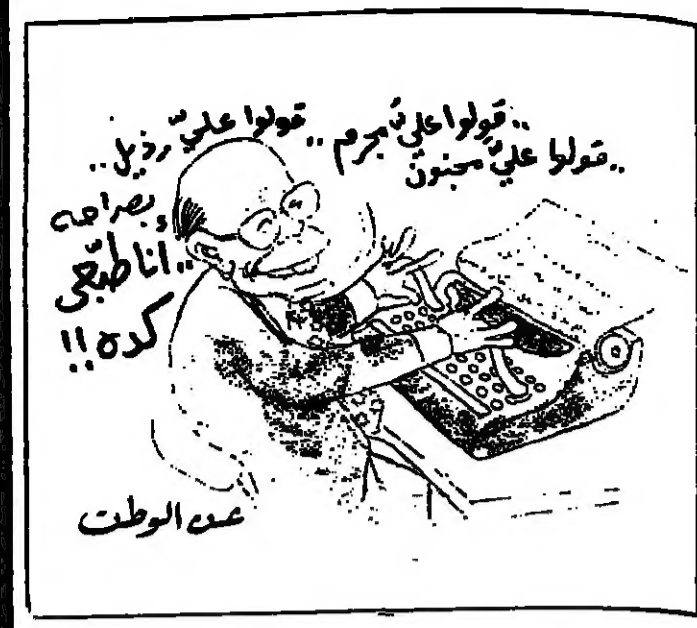 ..قولوا عليّ مجنون
..قولوا عليّ مجرم
..قولوا عليّ رذيل
بصراحه
..انا طبعي
كده!!
عن الوطن